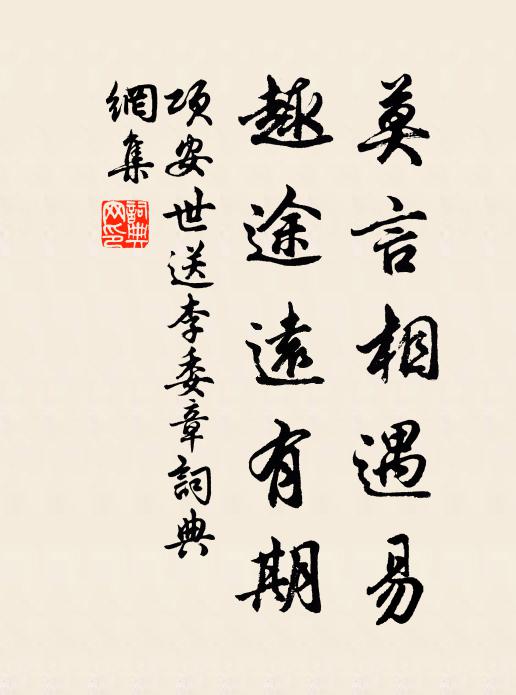 莫言相遇易
趣途遠有期
項安世送李委章詞典
網集
詞典網印